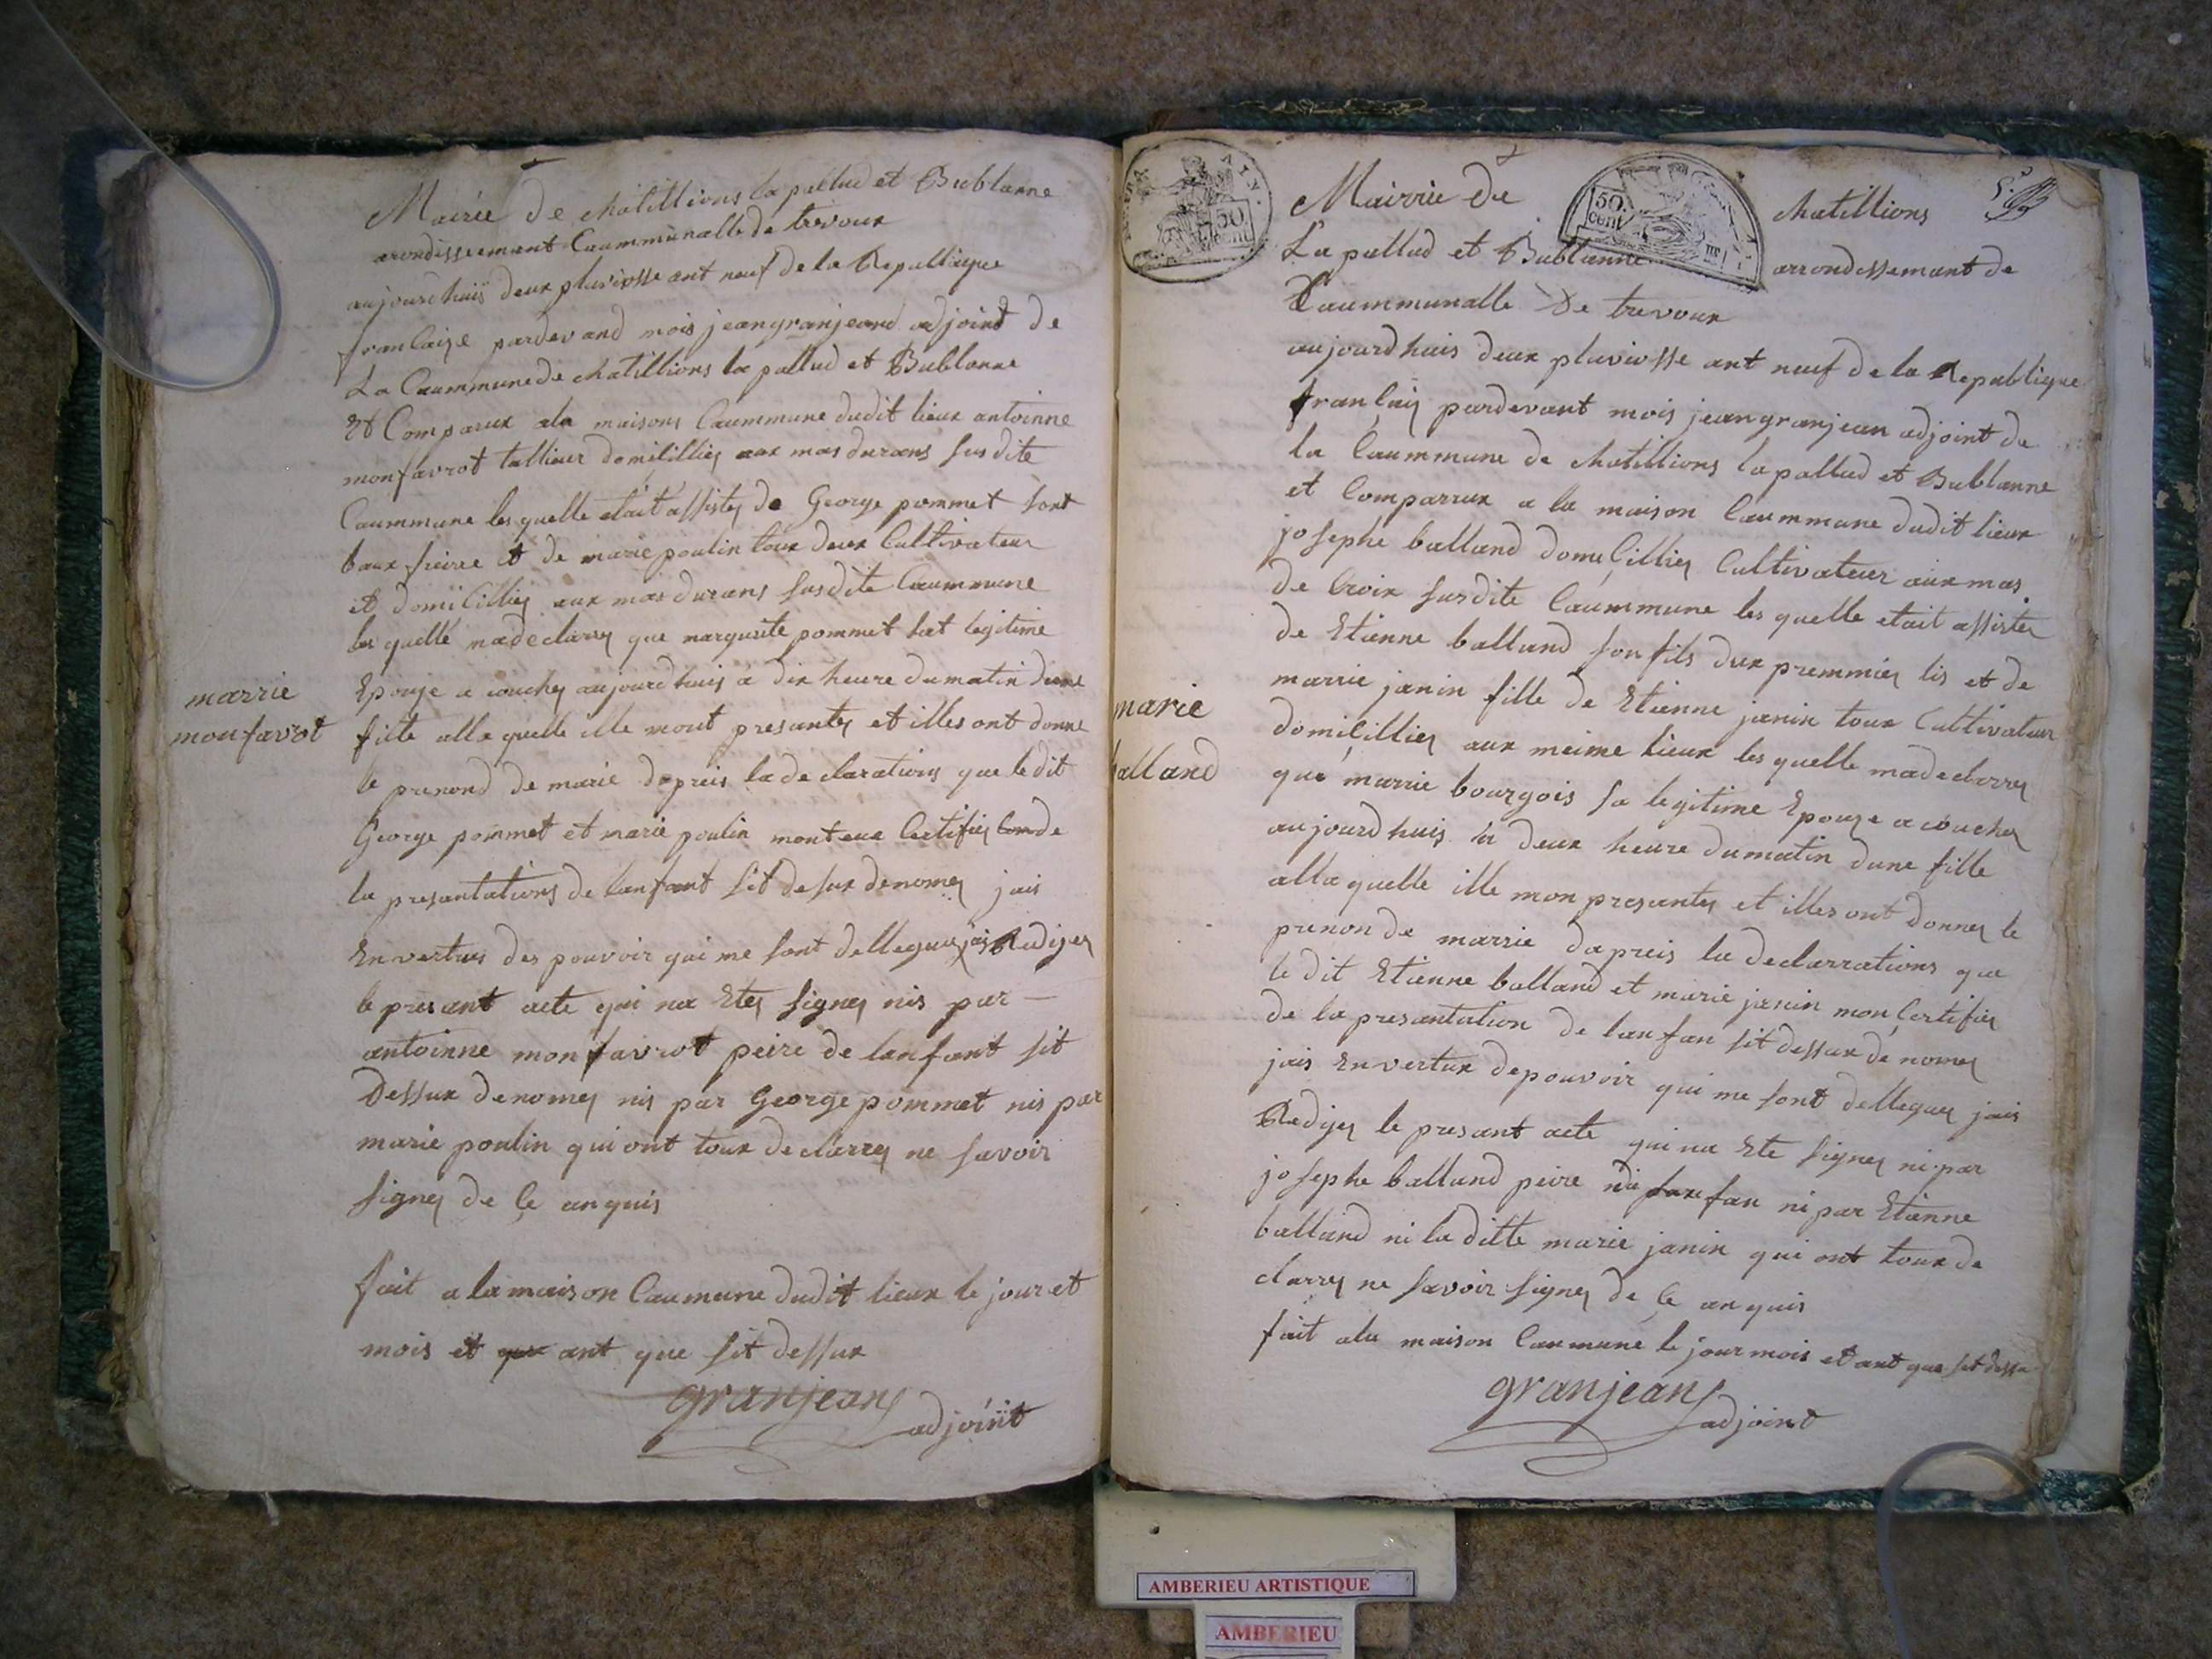 Mairie de chatillions la pallud et Bublanne
arondissement Caummunalle de trevoux
aujourdhuis deux pluviosse ant neuf de la Republique
francaize pardevand mois jean granjeand adjoint de
La Caummune de chatillions la pallud et Bublanne
Et Comparux ala maisons Caummune dudit lieux antoinne
monfavrot tallieur domicillies aux mas durans susdite
Caummune les quelle etait assistes de George pommet sont
baux freire et de marie poulin toux deux Cultivateur
et domicillies aux mas durans susdite Caummune
les quelle madeclares que margurite pommet sat legitime
Epouze a couches aujourdhuis a dix heure dumatin dune
fille alla quelle ille mont presantes et illes ont donne
le prenond de marie dapreis la declarations que le dit
George pommet et marie poulin mont Certifies de
la presantations de lanfant sit desux denomes jais
En vertus des pouvoir qui me sont dellegues jais Rediges
le presant acte qui na Etes signes nis par
antoinne monfavrot peire de lanfant sit
Dessux denomes nis par George pommet nis par
marie poulin qui ont toux declarres ne savoir
signes de ce anquis
fait a la maison Caumune dudit lieux le jour et
mois et ant que sit dessux
granjean
adjoint
marrie
monfavrot
Mairrie de chatillions
La pallud et Bublanne arrondissemant de
Caummunalle De trevoux
aujourdhuis deux pluviosse ant neuf de la Republique
francais pardevant mois jean granjean adjoint de
la Caummune de chatillions la pallud et Bublanne
et Comparrux a la maison Caummune dudit lieux
josephe balland domicillies Cultivateur aux mas
de Croix susdite Caummune les quelle etait assistes
de Etienne balland son fils dux premmies lis et de
marrie janin fille de Etienne janin toux Cultivateur
domicillies aux meime lieux les quelle madeclarres
que marrie bourgois sa legitime Epouze a couches
aujourdhuis a deux heure dumatin dune fille
alla quelle ille mon presantes et illes ont donnes le
prenon de marrie dapreis la declarrations que
le dit Etienne balland et marie janin mon Certifies
de la presantation de lanfan sit dessux denomes
jais En vertux de pouvoir qui me sont dellegues jais
Rediges le presant acte qui na Ete signes ni par
josephe balland peire fan ni par Etienne
balland ni la ditte marie janin qui ont toux de
clarres ne savoir signes de ce anquis
fait ala maison Caumune le jour mois et ant que sit dessu
granjean
adjoint
marie
balland
50
cent
50
cent
AMBERIEU ARTISTIQUE
AMBERIEU